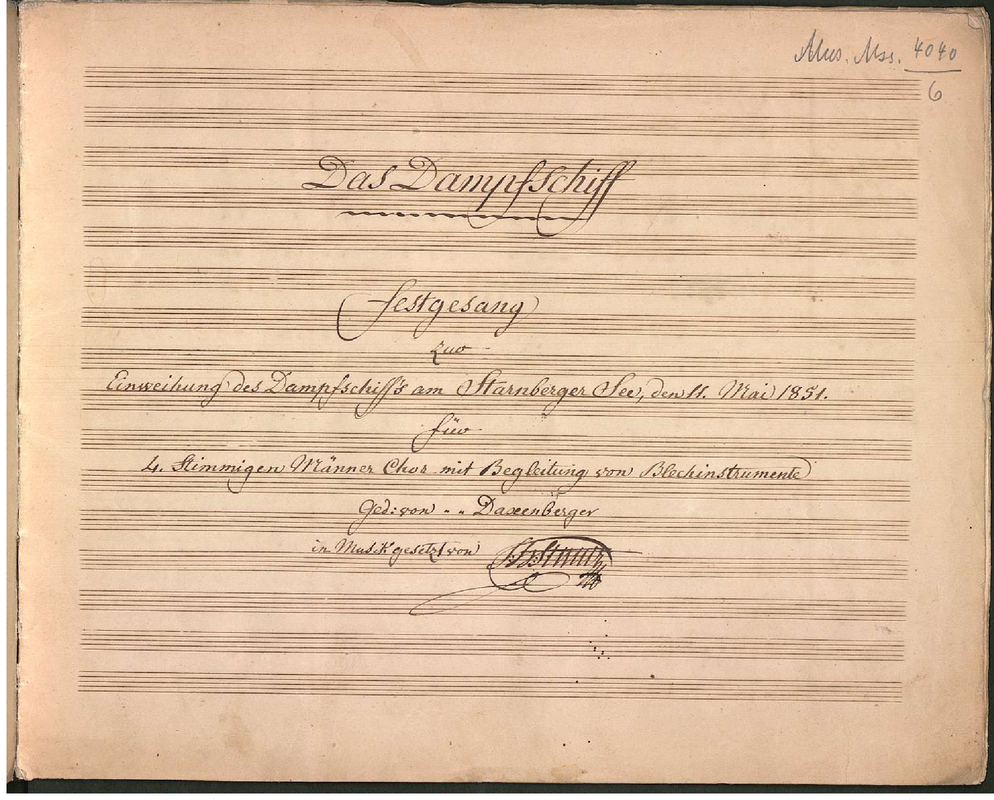 Mus. Mss. 4040
6
Das Dampfschiff
Festgesang
zur
Einweihung des Dampfschiff's am Starnberger See, den 11. Mai 1851.
für
4. Stimmigen Männer Chor mit Begleitung von Blechinstrumente
Ged: von " " Daxenberger
in Musik gesetzt von